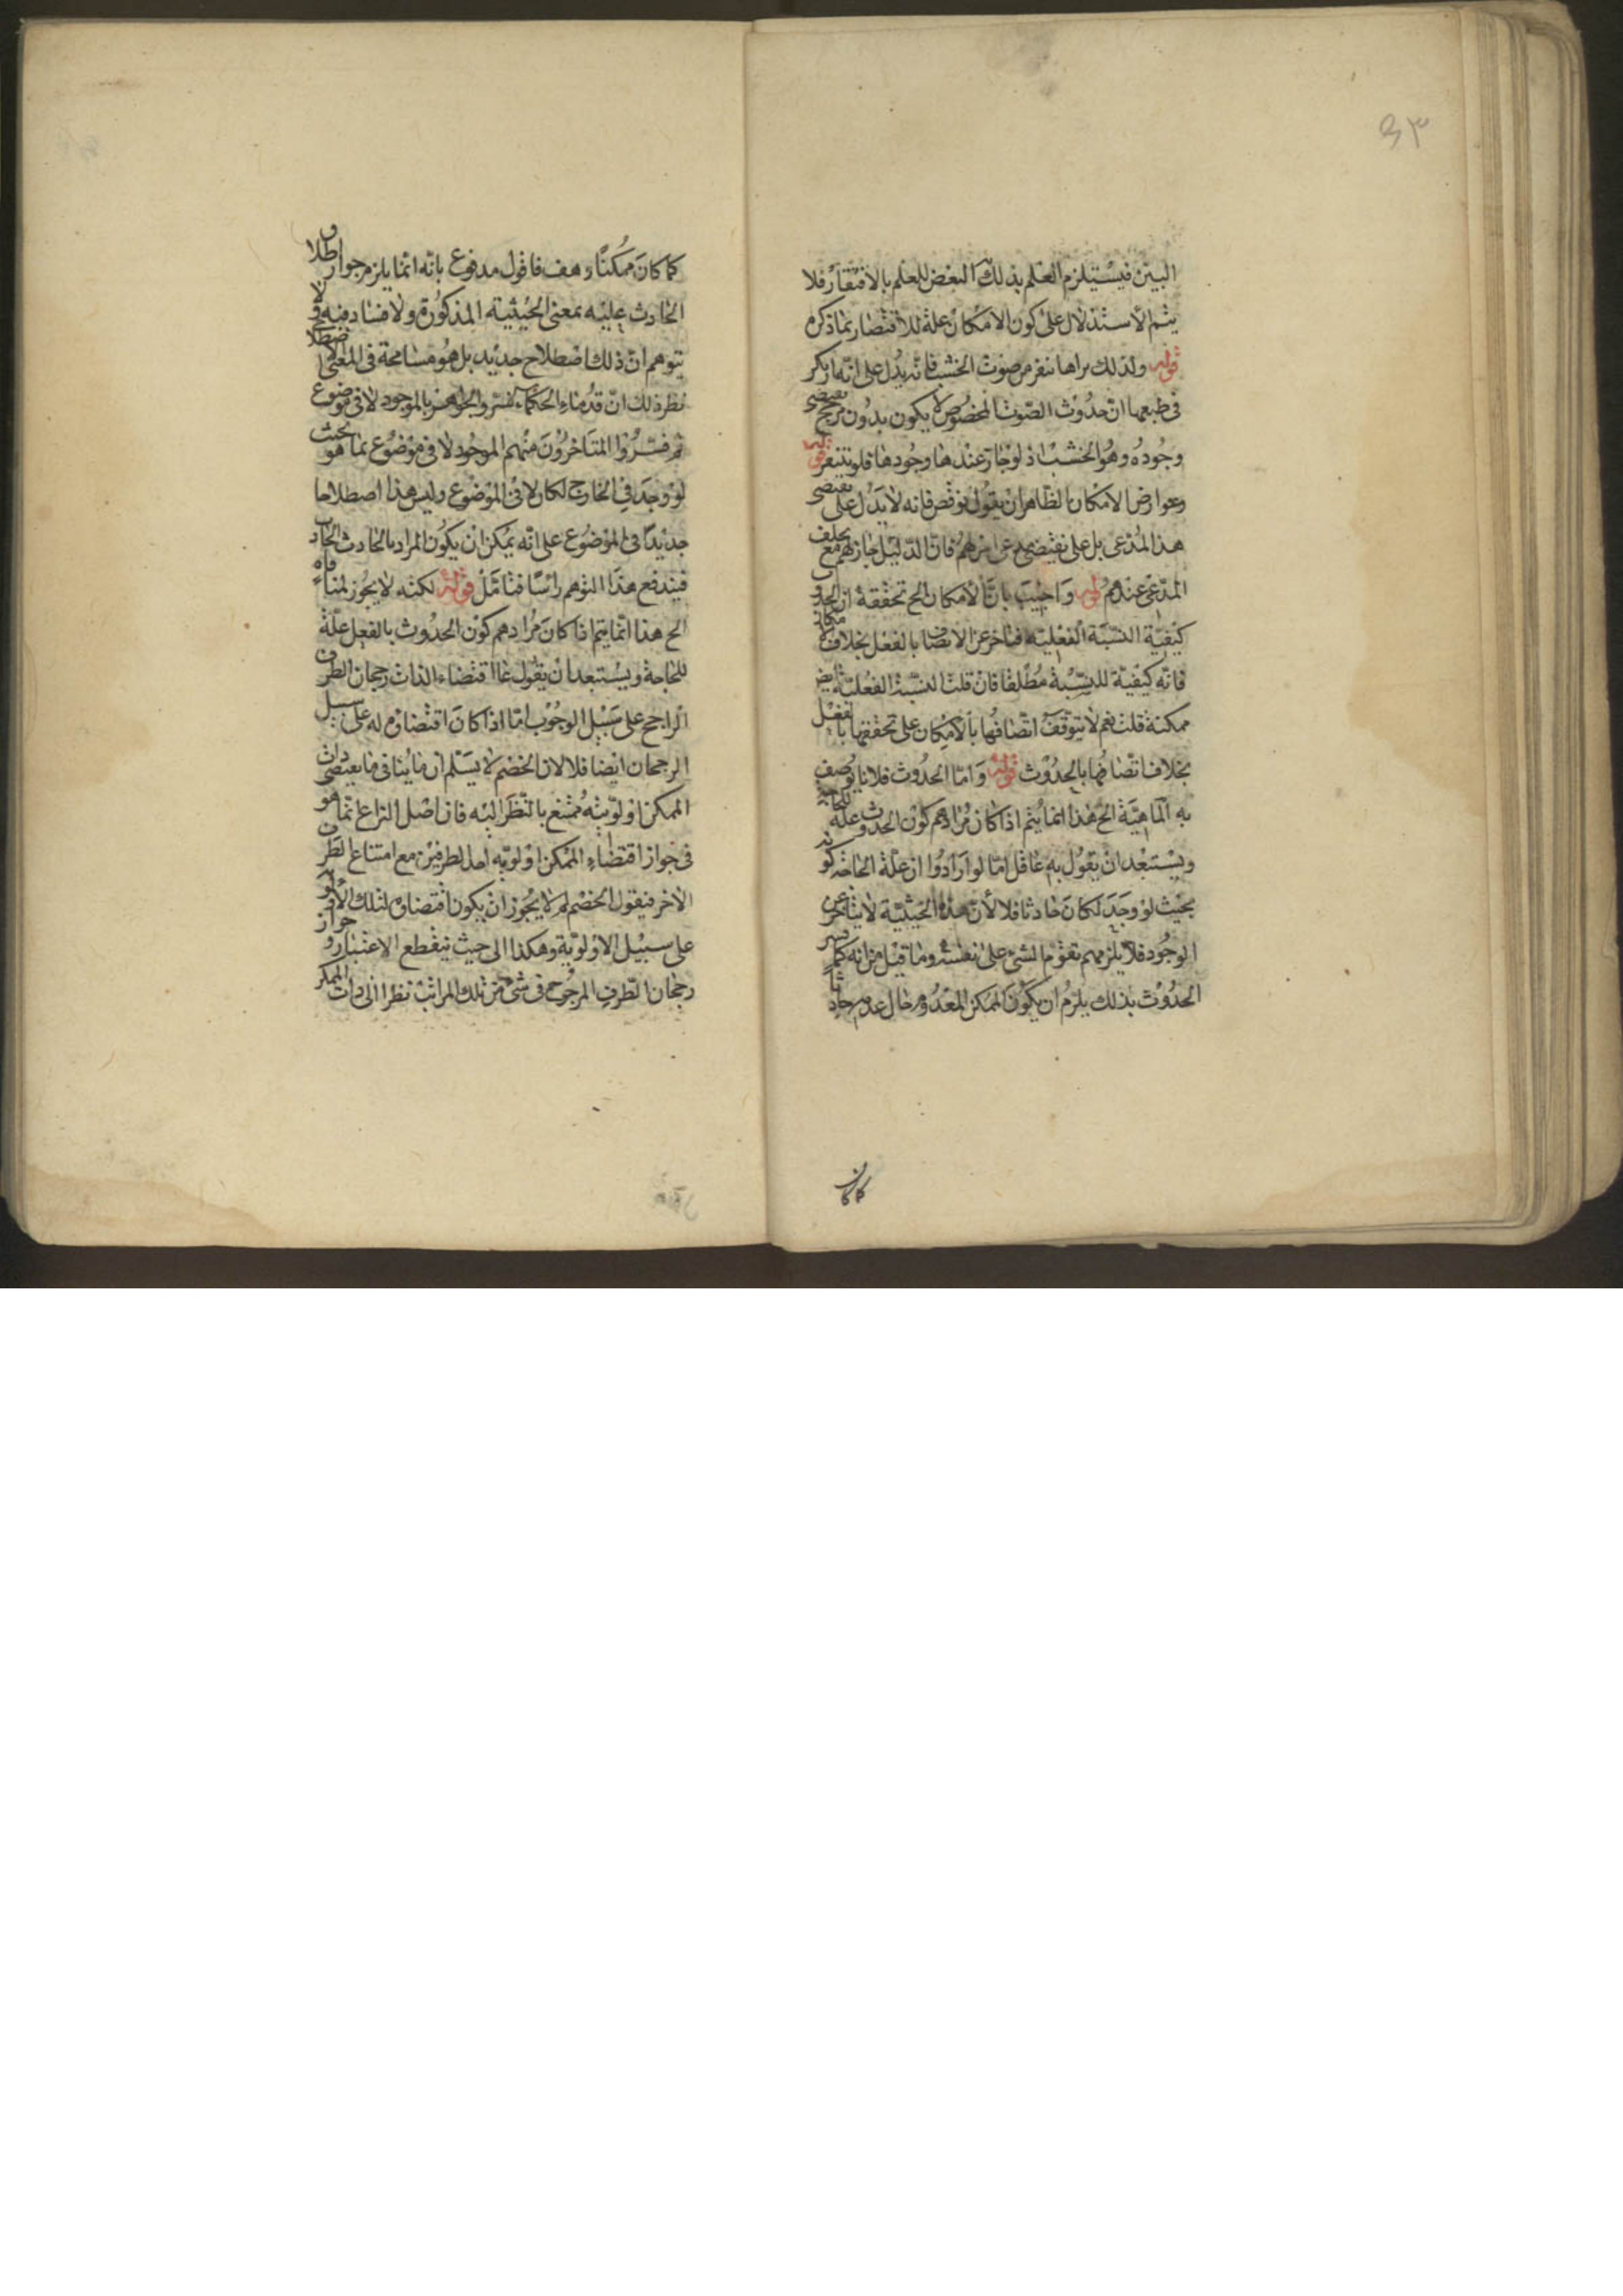 ٤٣
البين فيستلزم العلم بذلك البعض للعلم بالافتقار فلا
يتم الاستدلال على كون الامكان علة للافتقار بما ذكره
قوله ولذلك تراها تنفر من صوت الخشب فانه يدل على انه ارتكز
في طبعها ان حدوث الصوت المخصوص لا يكون بدون مرجح يقتضي
وجوده وهو الخشب اذ لو جاز عندها وجودها فلو تنفر قوله
وعوارض الامكان الظاهر ان يقول نوقض فانه لا يدل على
هذا المدعى بل على نقيضه فان الدليل جاز تخلف
المدعى عندهم قوله واجيب بان الامكان الخ تحققه ان الحدوث
كيفية النسبة الفعلية فيتأخر عن الاتصاف بالفعل بخلاف الامكان
فانه كيفية للنسبة مطلقا فان قلت النسبة الفعلية ايض
ممكنة قلت نعم لا يتوقف اتصافها بالامكان على تحققها بالفعل
بخلاف اتصافها بالحدوث قوله واما الحدوث فلا يوصف
به الماهية الخ هذا انما يتم اذا كان مرادهم كون الحدوث علة للحاجة
ويستبعد ان يقول به عاقل اما لو ارادوا ان علة الحاجة كونه
بحيث لو وجد لكان حادثا فلا لان هذه الحيثية لا يتأخر عن
الوجود فلا يلزمهم تقدم الشئ على نفسه وما قيل من انه كما فسر
الحدوث بذلك يلزم ان يكون الممكن المعدوم حال عدمه حادثا
كما كان
كما كان ممكنا وهف فاقول مدفوع بانه انما يلزم جواز اطلاق
الحادث عليه بمعنى الحيثية المذكورة ولا فساد فيه لا
يتوهم ان ذلك اصطلاح جديد بل هو مسامحة في المعنى الاصطلاحي
نظير ذلك ان قدماء الحكماء فسروا الجوهر بالموجود لا في موضوع
ثم فسروا المتأخرون منهم الموجود لا في موضوع بما هو بحيث
لو وجد في الخارج لكان لا في الموضوع وليس هذا اصطلاحا
جديدا في الموضوع على انه يمكن ان يكون المراد بالحادث الحادث
فيندفع هذا التوهم رأسا فتأمل قوله لكنه لا يجوز لمنافاة
الخ هذا انما يتم اذا كان مرادهم كون الحدوث بالفعل علة
للحاجة ويستبعد ان يقول اقتضاء الذات رجحان الطرف
الراجح على سبيل الوجوب اما اذا كان اقتضاؤه له على سبيل
الرجحان ايضا فلا لان الخصم لا يسلم ان ما ينافي ما يقتضي ذات
الممكن اولويته ممتنع بالنظر اليه فان اصل النزاع انما هو
في جواز اقتضاء الممكن اولوية احد الطرفين مع امتناع الطرف
الاخر فيقول الخصم لم لا يجوز ان يكون اقتضاؤه لتلك الاولوية
على سبيل الاولوية وهكذا الى حيث ينقطع الاعتبار وجواز
رجحان الطرف المرجوح في شئ من تلك المراتب نظرا الى ذات الممكن